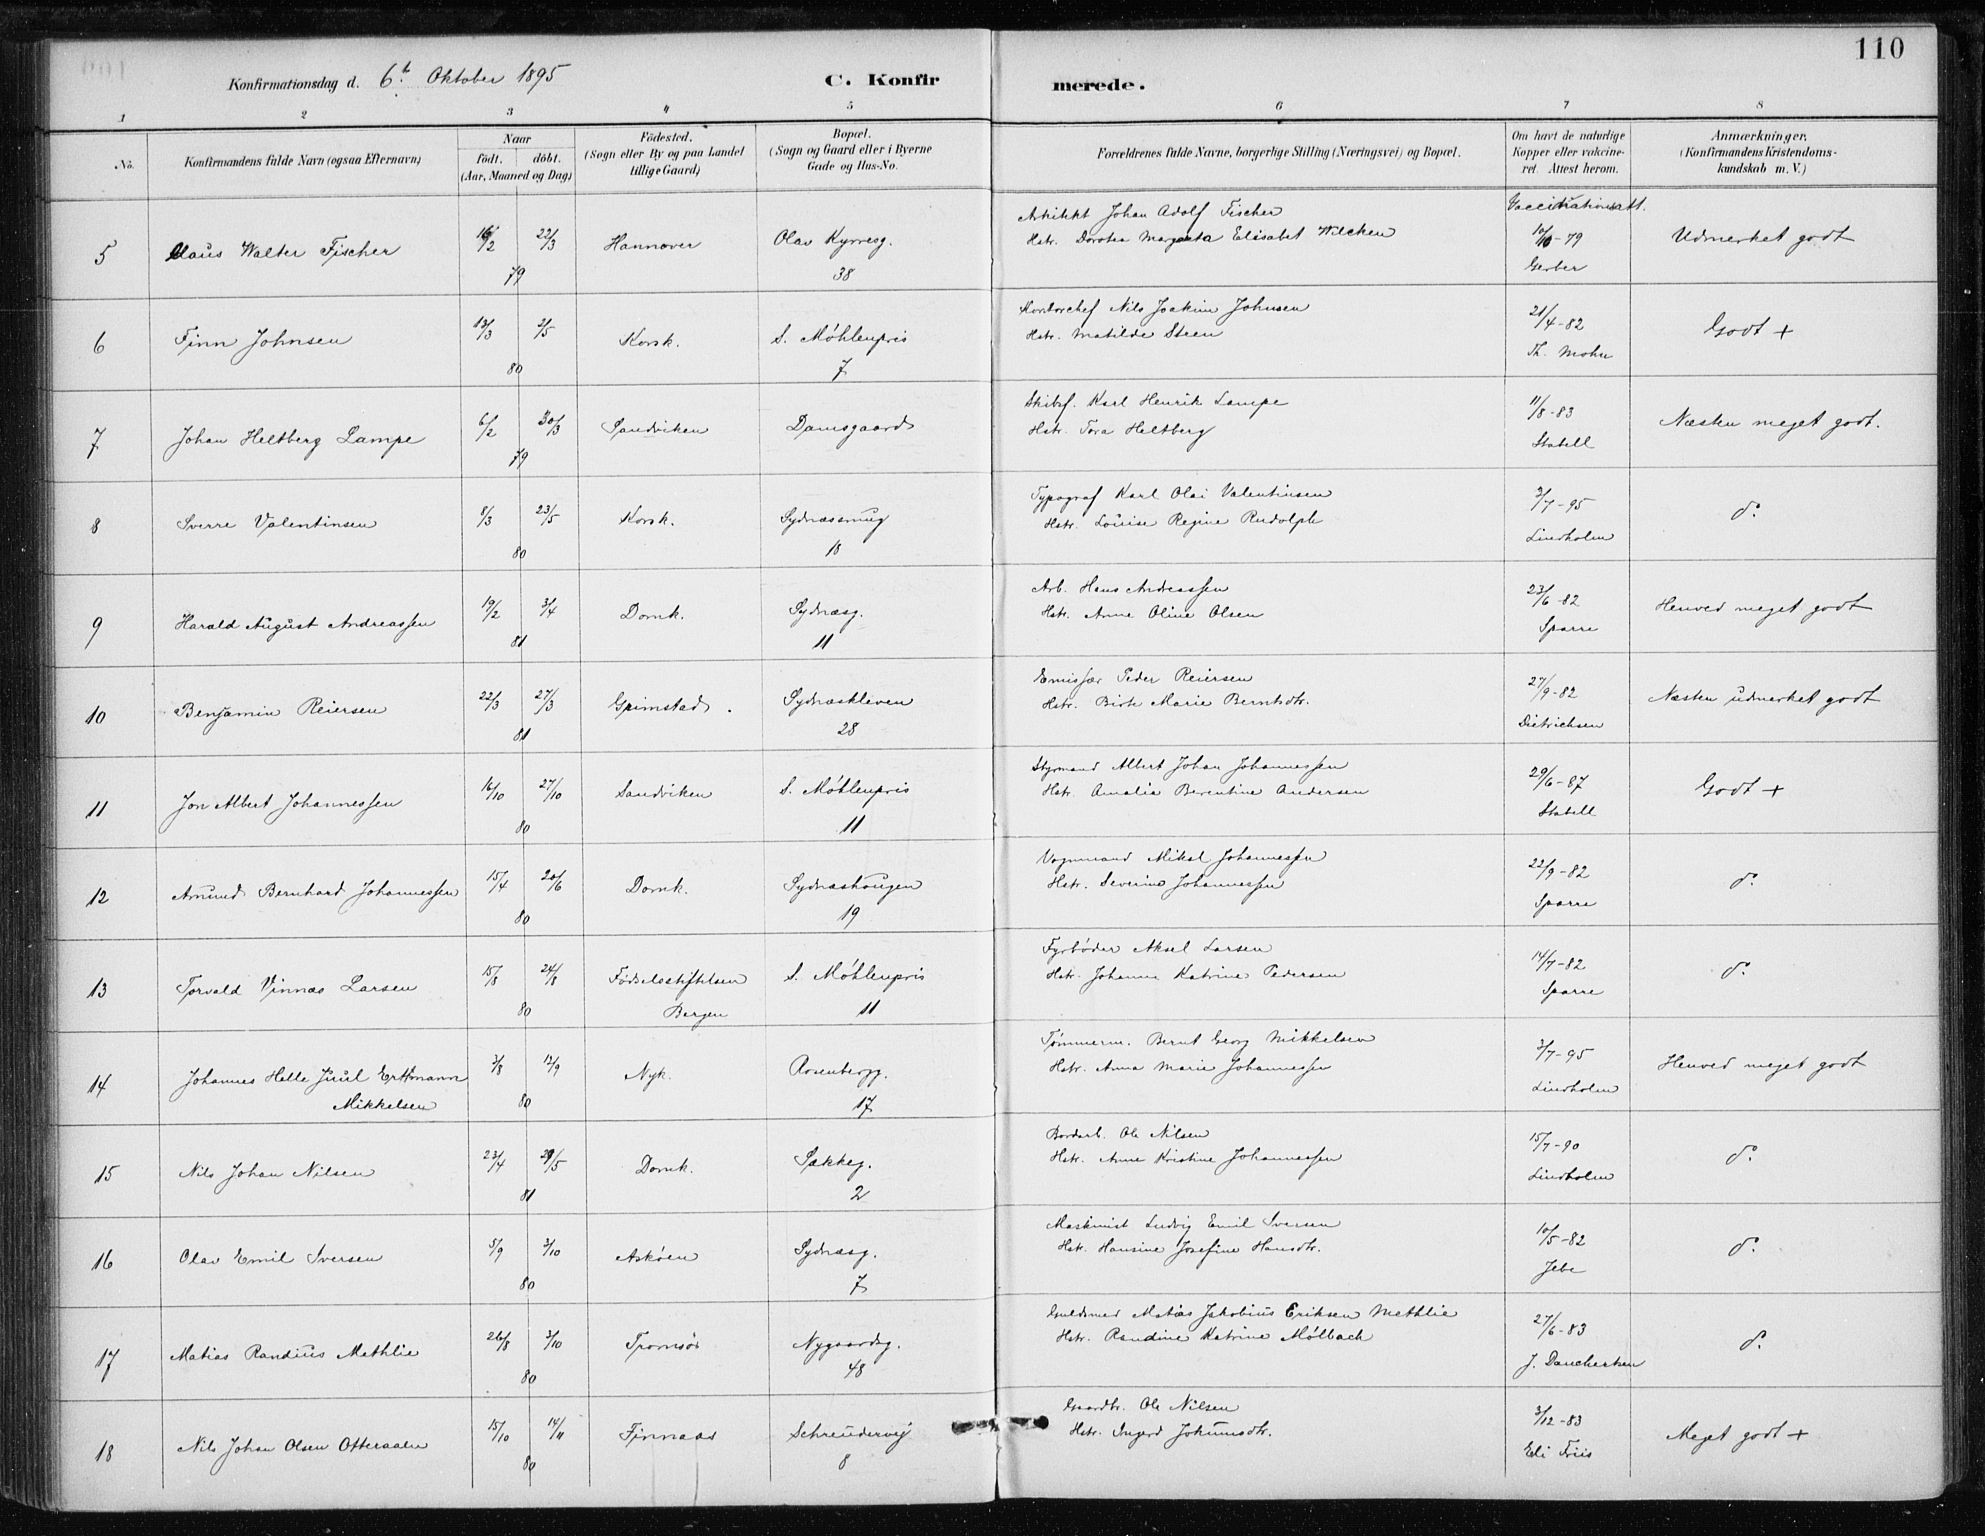 110
Konfirmationsdag d. 6t Oktober 1895
C. Konfirmerede.
1 2 3 4 5 6 7 8
No.
Konfirmandens fulde Navn (ogsaa Efternavn)
Naar
födt. döbt.
(Aar, Maaned og Dag)
Födested.
(Sogn eller By og paa Landet
tillige Gaard)
Bopæl.
(Sogn og Gaard eller i Byerne
Gade og Hus-No.
Forældrenes fulde Navne, borgerlige Stilling (Næringsvei) og Bopæl.
Om havt de naturlige
Kopper eller vakcine-
ret. Attest herom.
Anmærkninger.
(Konfirmandens Kristendoms-
kundskab m. V.)
5 Claus Walter Fischer 16/2 22/3 79 Hannover Olav Kyrresg. 38
Arkitekt Johan Adolf Fischer
Hstr. Dorotea Margareta Elisabet Wilcken
Vaccinationsatt.
10/10-79
Gerber
Udmerket godt
6 Finn Johnsen 13/3 2/5 80 Korsk. S. Möhlenpris 7
Kontorchef Nils Joakim Johnsen
Hstr. Matilde Steen
21/4-82
Th. Mohn
Godt +
7 Johan Heltberg Lampe 6/2 30/3 79 Sandviken Damsgaard
Skibsf. Karl Henrik Lampe
Hstr. Tora Heltberg
11/8-83
Stabell
Næsten meget godt.
8 Sverre Valentinsen 8/3 23/5 80 Korsk. Sydnæssmug 18
Typograf Karl Olai Valentinsen
Hstr. Louise Regine Rudolph
3/7-95
Lindholm
d.
9 Harald August Andreassen 19/2 3/4 81 Domk. Sydnæsg. 11
Arb. Hans Andreassen
Hstr. Anne Oline Olsen
23/6-82
Sparre
Henved meget godt
10 Benjamin Reiersen 22/3 27/3 81 Grimstad. Sydnæskleven 28
Emissær Peder Reiersen
Hstr. Birte Marie Berntsdtr.
27/9-82
Dietrichsen
Næsten udmerket godt
11 Jon Albert Johannessen 16/10 27/10 80 Sandviken S. Möhlenpris 11
Styrmand Albert Johan Johannessen
Hstr. Amalia Berentine Andersen
29/6-87
Stabell
Godt +
12 Amund Bernhard Johannessen 15/4 20/6 80 Domk. Sydnæshougen 19
Vognmand Mikal Johannessen
Hstr. Severine Johannessen
22/9-82
Sparre
d.
13 Torvald Vinnæs Larsen 15/8 24/8 80 Födselsstiftelsen Bergen S. Möhlenpris 11
Fyrböder Aksel Larsen
Hstr. Johanne Katrine Pedersen
14/7-82
Sparre
d.
14 Johannes Helle Juul Erttmann Mikkelsen 3/8 12/9 80 Nyk. Rosenbergg. 17
Tömmerm. Bernt Georg Mikkelsen
Hstr. Anna Marie Johannessen
3/7-95
Lindholm
Henved meget godt
15 Nils Johan Nilsen 23/4 29/5 81 Domk. Sækkeg. 2
Bordarb. Ole Nilsen
Hstr. Anne Kristine Johannessen
15/7-90
Lindholm
d.
16 Olav Emil Iversen 5/9 3/10 80 Asköen Sydnæsg. 7
Maskinist Ludvig Emil Iversen
Hstr. Hansine Josefine Hansdtr.
10/5-82
Jebe
d.
17 Matias Randius Methlie 26/8 3/10 80 Tromsö Nygaardsg. 48
Guldsmed Matias Jakobius Eriksen Methlie
Hstr. Randine Katrine Mölbach
27/6-83
J. Danchertsen
d.
18 Nils Johan Olsen Otteraaen 15/10 14/11 80 Finnaas Schreudervij 8
Gaardbr. Ole Nilsen
Hstr. Ingerd Johannsdtr.
3/12-83
Eli Friis
Meget godt +